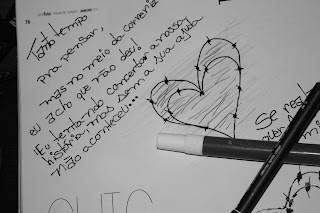 76
Tanto tempo
pra pensar,
mas no meio da correria
eu acho que não deu!
Eu tentando consertar a nossa
história, mas sem a sua ajuda
Não aconteceu...
Se